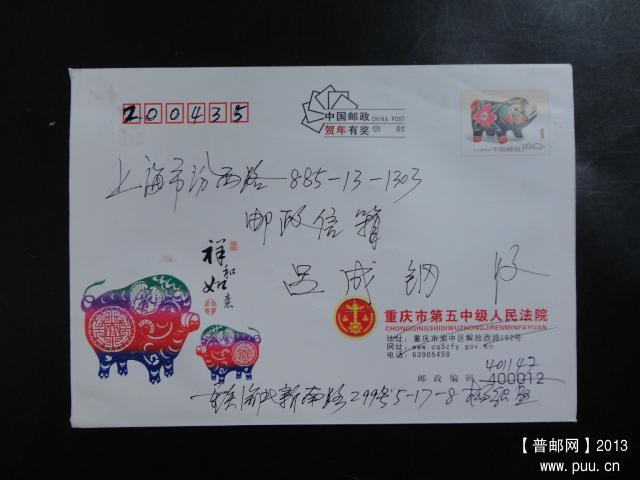 200435
中国邮政 CHINA POST
贺年有奖 信 封
上海市汾西路885-13-1303
邮政信箱
吕成钢 收
祥和如意
重庆市第五中级人民法院
CHONGQINGSHIDIWUZHONGJIRENMINFAYUAN
地址:重庆市渝中区解放西路152号
网址:www.cq5zfy.gov.cn
电话:63905458
401147
邮政编码 400012
重庆渝北新南路299号5-17-8
【普邮网】2013
www.puu.cn